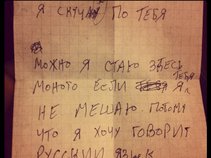 Я СКУЧАЛ ПО ТЕБЯ
МОЖНО Я СТАЮ ЗДЕСЬ
МОНОТО ЕСЛИ Я
ТЕБЯ
НЕ МЕШАЮ ПОТОМУ
ЧТО Я ХОЧУ ГОВОРИТ
РУССКИЙ ЯЗЫК